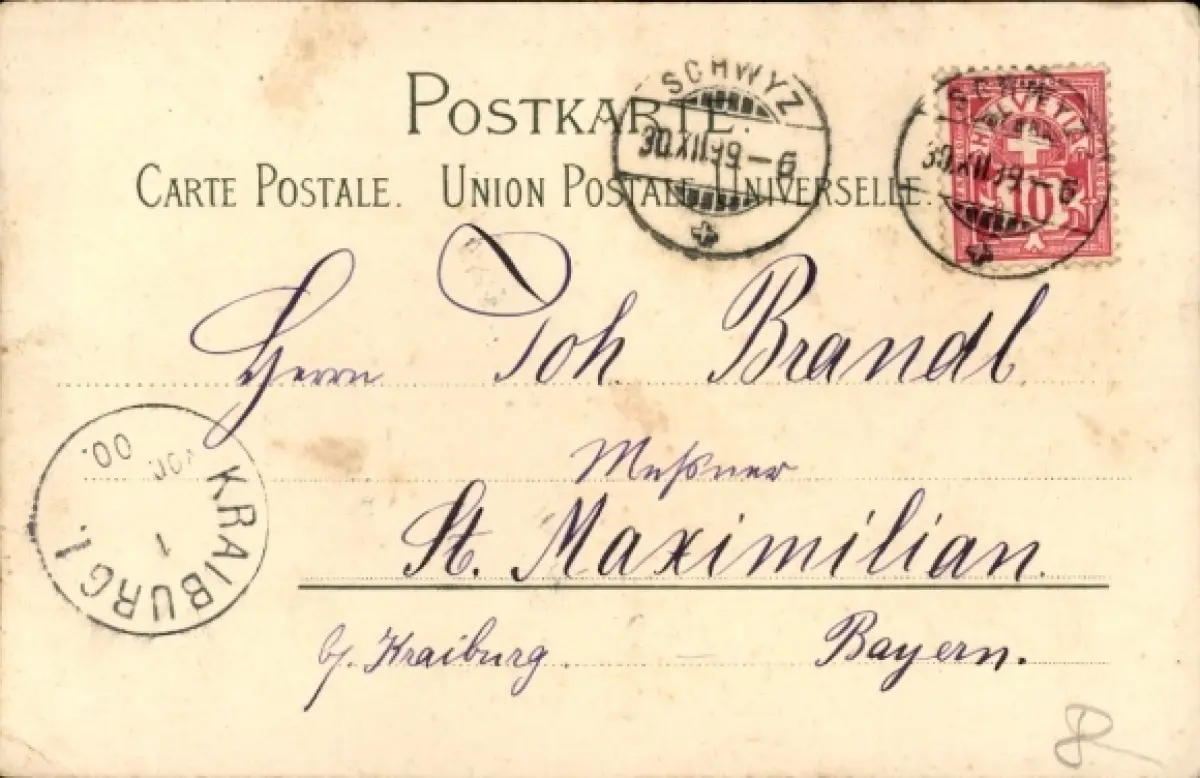 POSTKARTE.
CARTE POSTALE. UNION POSTALE UNIVERSELLE.
SCHWYZ
30.XII.99-6
SCHWYZ
30.XII.99-6
HELVETIA
10
Herrn Joh. Brandl
Meßner
St. Maximilian.
b/. Kraiburg. Bayern.
KRAIBURG I.
1
00.
8